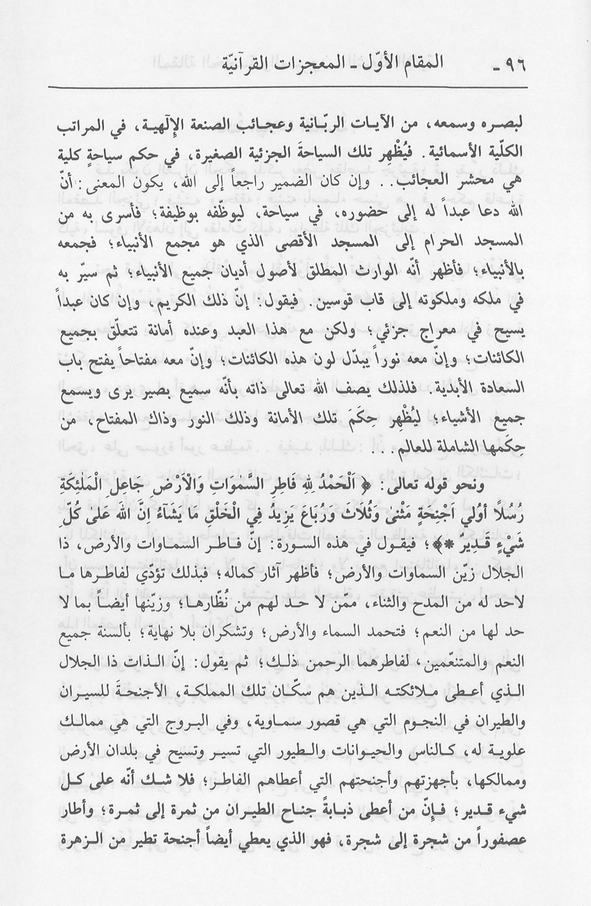 ٩٦ - المقام الأوّل - المعجزات القرآنيّة
لبصره وسمعه، من الآيات الربّانية وعجائب الصنعة الإلٓهية، في المراتب
الكلّية الأسمائية. فيُظْهِر تلك السياحةَ الجزئية الصغيرة، في حكم سياحةٍ كلية
هي محشر العجائب.. وإن كان الضمير راجعاً إلى الله، يكون المعنى: أنّ
الله دعا عبداً له إلى حضوره، في سياحة، ليوظّفه بوظيفة؛ فأسرى به من
المسجد الحرام إلى المسجد الأقصى الذي هو مجمع الأنبياء؛ فجمعه
بالأنبياء؛ فأظهر أنّه الوارث المطلق لأصول أديان جميع الأنبياء؛ ثم سيّر به
في ملكه وملكوته إلى قاب قوسين. فيقول: إنّ ذلك الكريم، وإن كان عبداً
يسيح في معراج جزئي؛ ولكن مع هذا العبد وعنده أمانة تتعلّق بجميع
الكائنات؛ وإنّ معه نوراً يبدّل لون هذه الكائنات؛ وإنّ معه مفتاحاً يفتح باب
السعادة الأبدية. فلذلك يصف الله تعالى ذاته بأنّه سميع بصير يرى ويسمع
جميع الأشياء؛ ليُظْهِر حِكَمَ تلك الأمانة وذلك النور وذاك المفتاح، من
حِكَمها الشاملة للعالم...
ونحو قوله تعالى: ﴿ اَلْحَمْدُ لِلهِ فَاطِرِ السَّمٰوَاتِ وَالْاَرْضِ جَاعِلِ الْمَلٰئِكَةِ
رُسُلًا اُولٓي اَجْنِحَةٍ مَثْنٰى وَثُلَاثَ وَرُبَاعَ يَزِيدُ فِي الْخَلْقِ مَا يَشَآءُ اِنَّ اللهَ عَلٰى كُلِّ
شَيْءٍ قَدِيرٌ * ﴾؛ فيقول في هذه السورة: إنّ فاطر السماوات والأرض، ذا
الجلال زيّن السماوات والأرض؛ فأظهر آثار كماله؛ فبذلك تؤدّي لفاطرها ما
لاحد له من المدح والثناء، ممّن لا حد لهم من نُظّارها؛ وزيّنها أيضاً بما لا
حد لها من النعم؛ فتحمد السماء والأرض؛ وتشكران بلا نهاية؛ بألسنة جميع
النعم والمتنعّمين، لفاطرهما الرحمن ذلك؛ ثم يقول: إنّ الذات ذا الجلال
الذي أعطى ملائكته الذين هم سكّان تلك المملكة، الأجنحةَ للسيران
والطيران في النجوم التي هي قصور سماوية، وفي البروج التي هي ممالك
علوية له، كالناس والحيوانات والطيور التي تسير وتسيح في بلدان الأرض
وممالكها، بأجهزتهم وأجنحتهم التي أعطاهم الفاطر؛ فلا شك أنّه على كل
شيء قدير؛ فإنّ من أعطى ذبابةً جناح الطيران من ثمرة إلى ثمرة؛ وأطار
عصفوراً من شجرة إلى شجرة، فهو الذي يعطي أيضاً أجنحة تطير من الزهرة